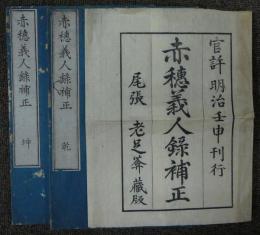 官許明治壬申刊行
赤穗義人錄補正
尾張 老足葊藏版
赤穗義人錄補正 乾
赤穗義人錄補正 坤